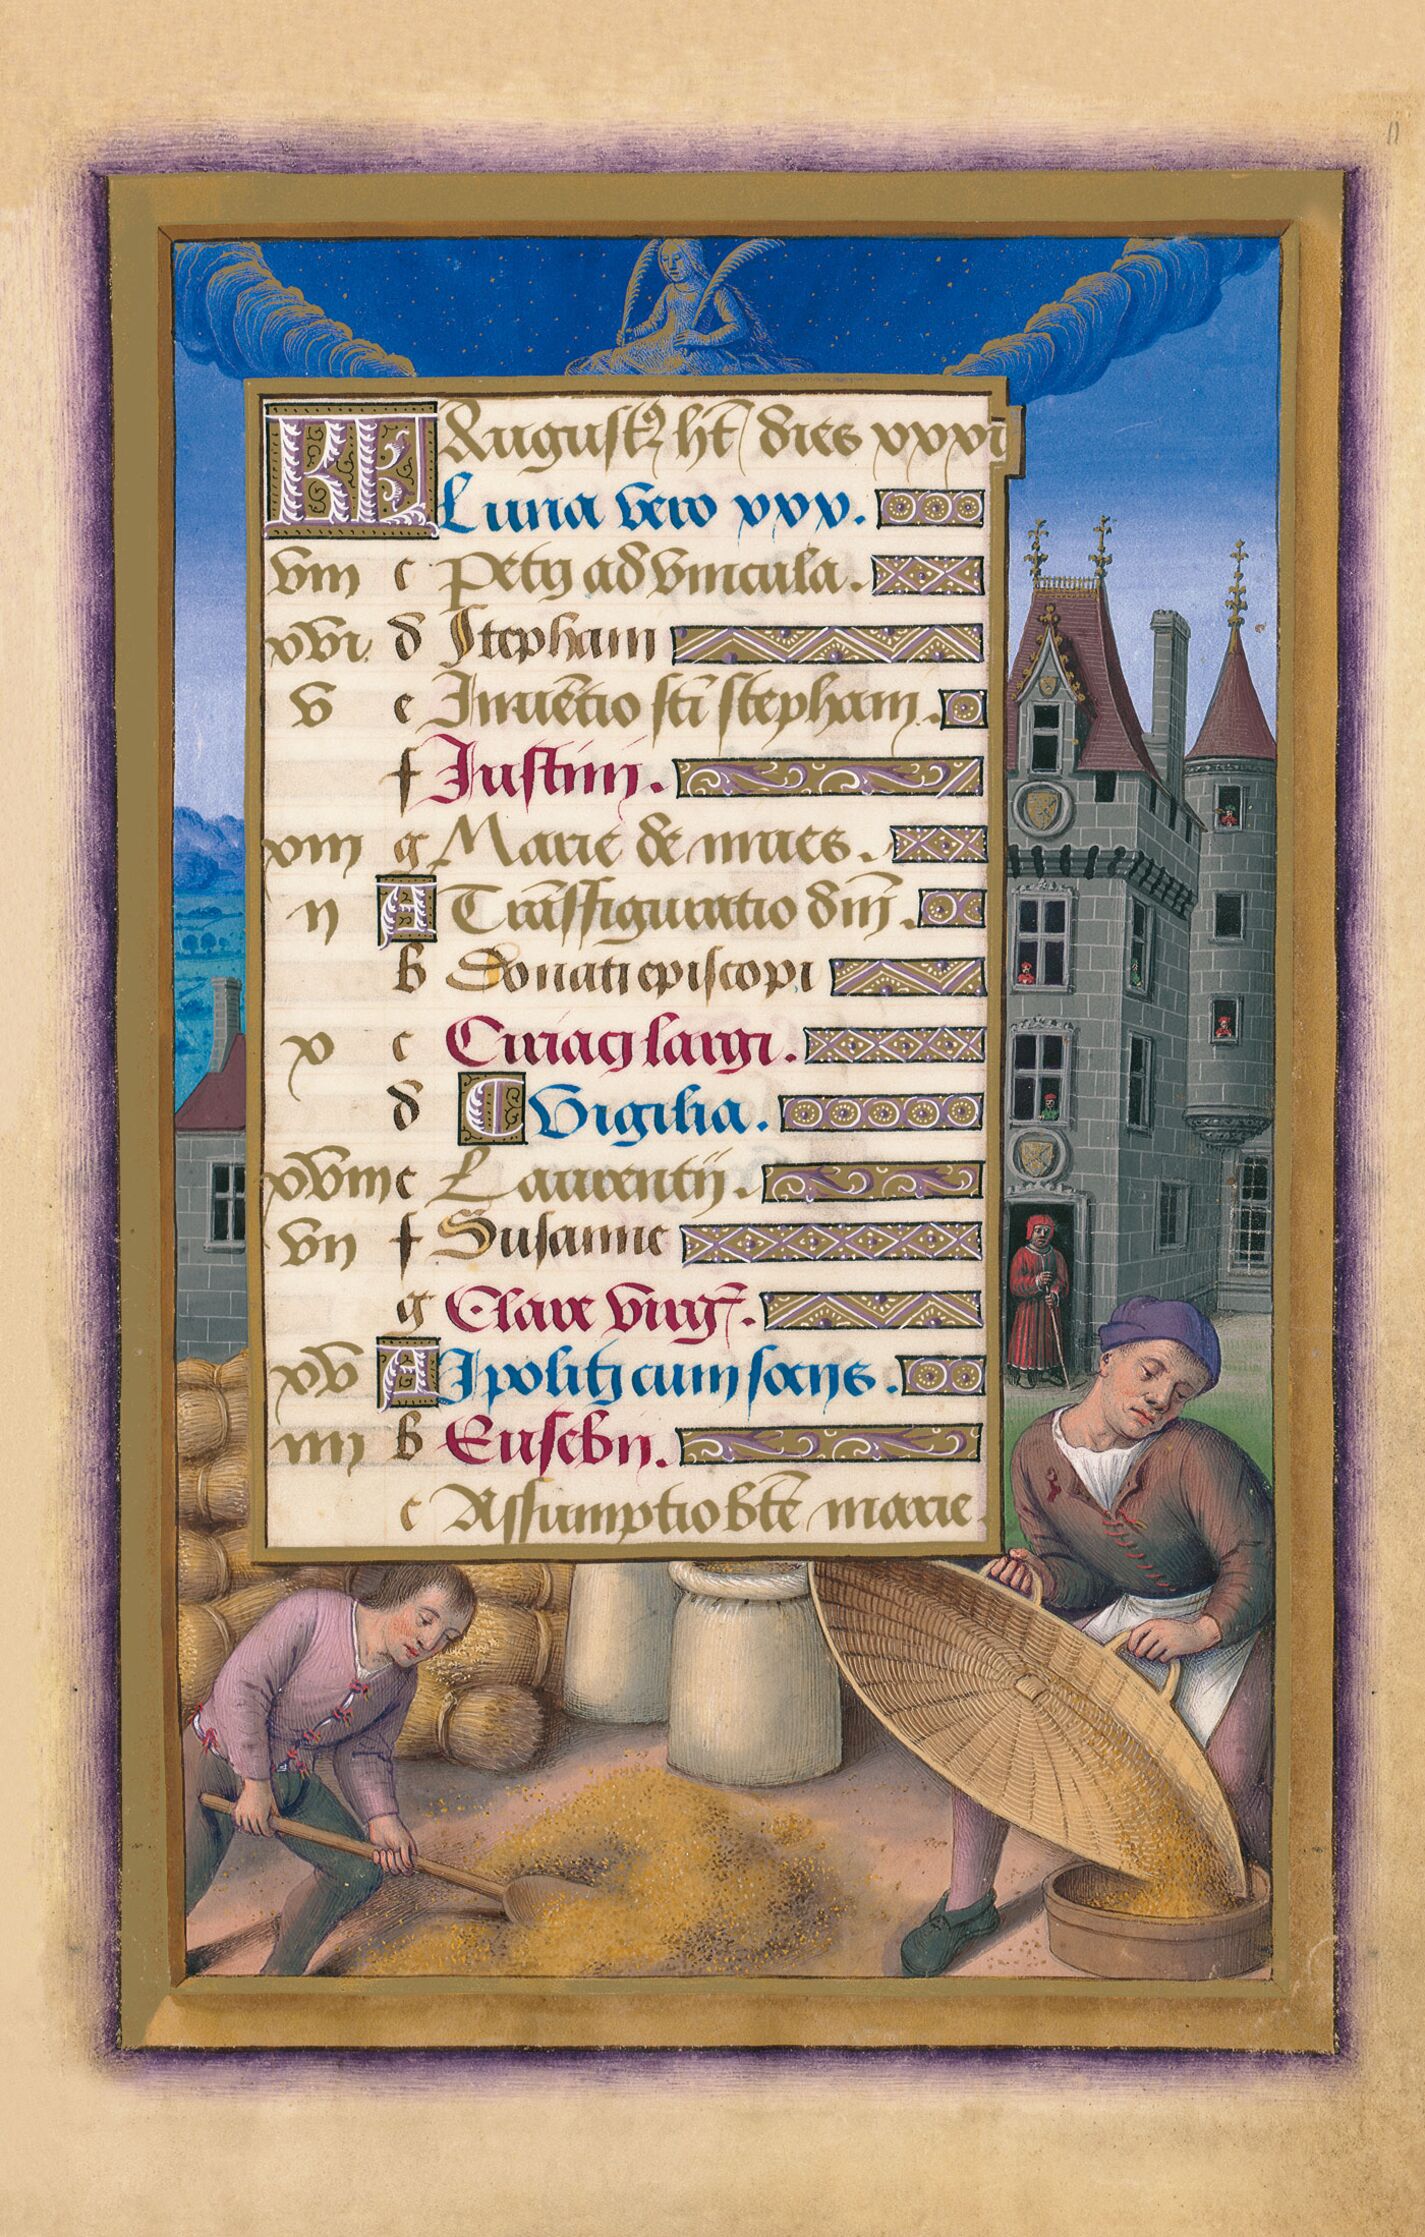 KL Augustꝰ ht̄ dies xxxi
Luna vero xxx.
viii c Petri ad vincula.
xvi. d Stephani
v e Inuētio sc̄i stephani.
f Iustini.
xiii g Marie de niues.
ii A Trāsfiguratio dn̄i.
b Donati episcopi
x c Ciriaci largi.
d Vigilia.
xviii e Laurentij.
vii f Susanne
g Clare virgꝭ.
xv A Ipoliti cum socijs.
iiii b Eusebii.
c Assumptio bt̄e marie.